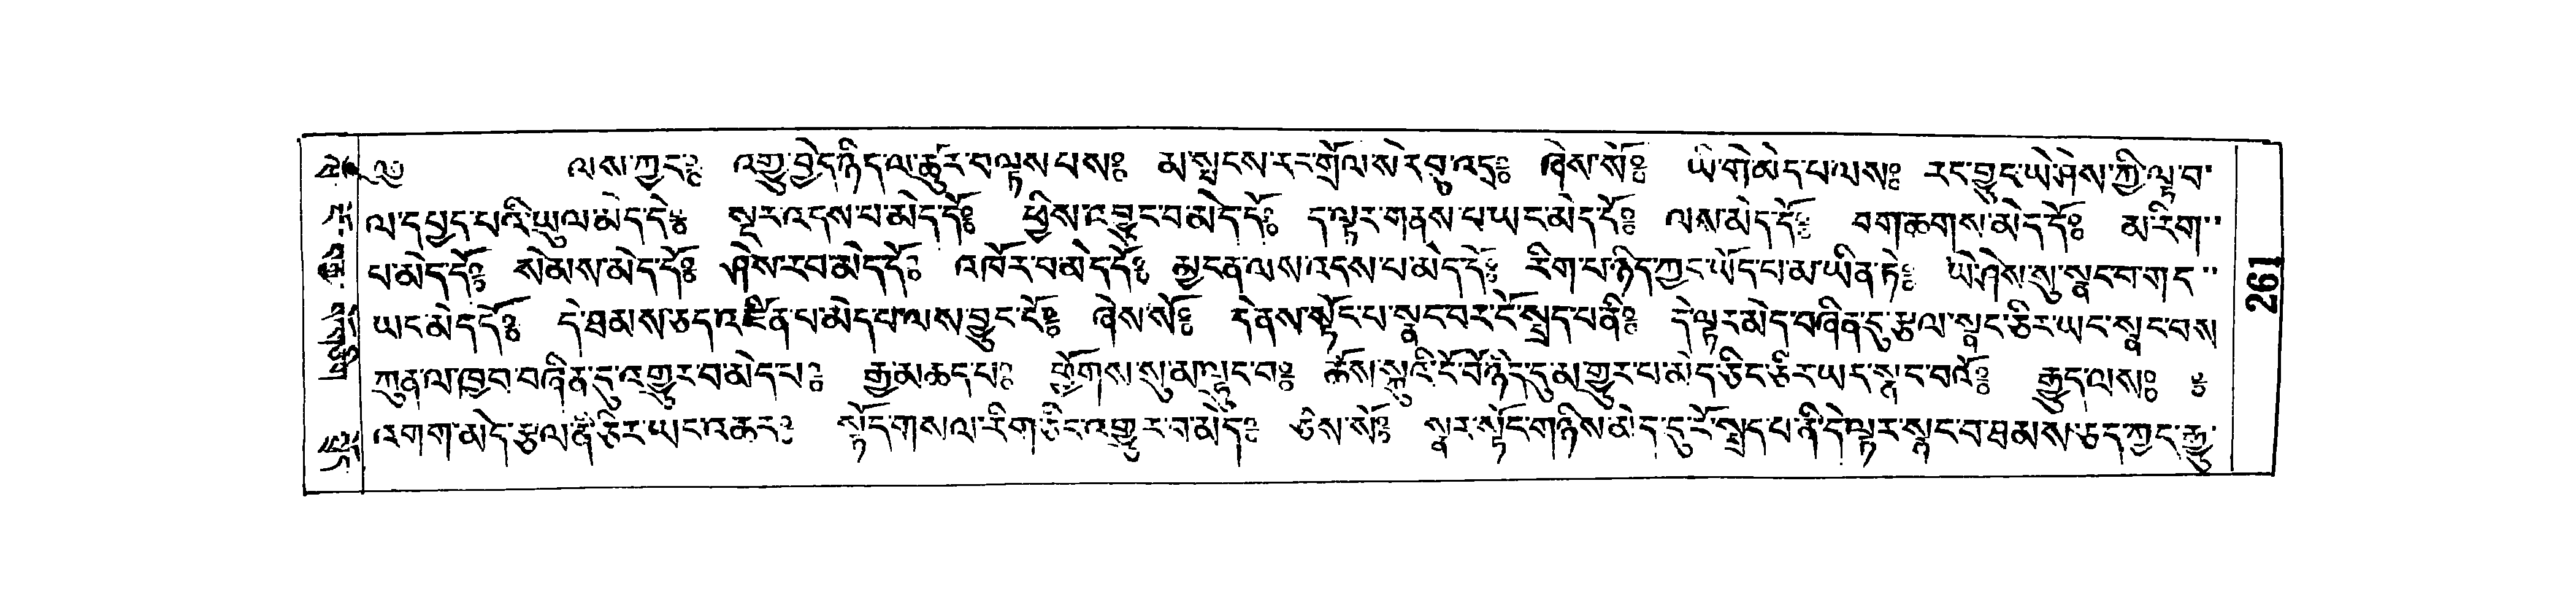 ལས་ཀྱང༔ འགྱུ་བྱེད་ཉིད་ལ་ཚུར་བལྟས་པས༔ མ་སྤངས་རང་གྲོལ་སེར་བུ་འདྲ༔ ཞེས་སོ༔ ཡི་གེ་མེད་པ་ལས༔ རང་བྱུང་ཡེ་ཤེས་ཀྱི་ལྟ་བ་
ལ་དཔྱད་པའི་ཡུལ་མེད་དེ༔ སྔར་འདས་པ་མེད་དོ༔ ཕྱིས་འབྱུང་བ་མེད་དོ༔ ད་ལྟར་གནས་པ་ཡང་མེད་དོ༔ ལས་མེད་དོ༔ བག་ཆགས་མེད་དོ༔ མ་རིག་
པ་མེད་དོ༔ སེམས་མེད་དོ༔ ཤེས་རབ་མེད་དོ༔ འཁོར་བ་མེད་དོ༔ མྱངན་ལས་འདས་པ་མེད་དོ༔ རིག་པ་ཉིད་ཀྱང་ཡོད་པ་མ་ཡིན་ཏེ༔ ཡེ་ཤེས་སུ་སྣང་བ་གང་
ཡང་མེད་དོ༔ དེ་ཐམས་ཅད་འཛིན་པ་མེད་པ་ལས་བྱུང་ངོ༔ ཞེས་སོ༔ ད་ནེས་སྟོང་པ་སྣང་བར་ངོ་སྤྲད་པ་ནི༔ དེ་ལྟར་མེད་བཞིན་དུ་རྩལ་སྣང་ཅིར་ཡང་སྣང་བས
ཀུན་ལ་ཁྱབ་བཞིན་དུ་འགྱུར་བ་མེད་པ༔ རྒྱ་མ་ཆད་པ༔ ཕྱོགས་སུ་མ་ལྷུང་བ༔ ཆོས་སྐུའི་ངོ་བོ་ཉིད་དུ་མ་གྱུར་པ་མེད་ཅིང་ཅིར་ཡང་སྣང་བའོ༔ རྒྱུད་ལས༔
འགག་མེད་རྩལ་ནི་ཅིར་ཡང་འཆར༔ སྟོང་གསལ་རིག་ཅིང་འགྱུར་བ་མེད༔ ཅེས་སོ༔ སྣར་སྟོང་གཉིས་མེད་དུ་ངོ་སྤྲད་པ་ནི་དེ་ལྟར་སྣང་བ་ཐམས་ཅད་ཀྱང་རྒྱུ་